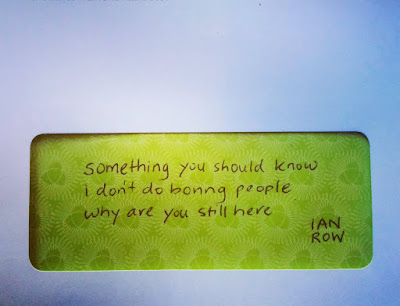 something you should know
i don't do boring people
why are you still here
IAN
ROW